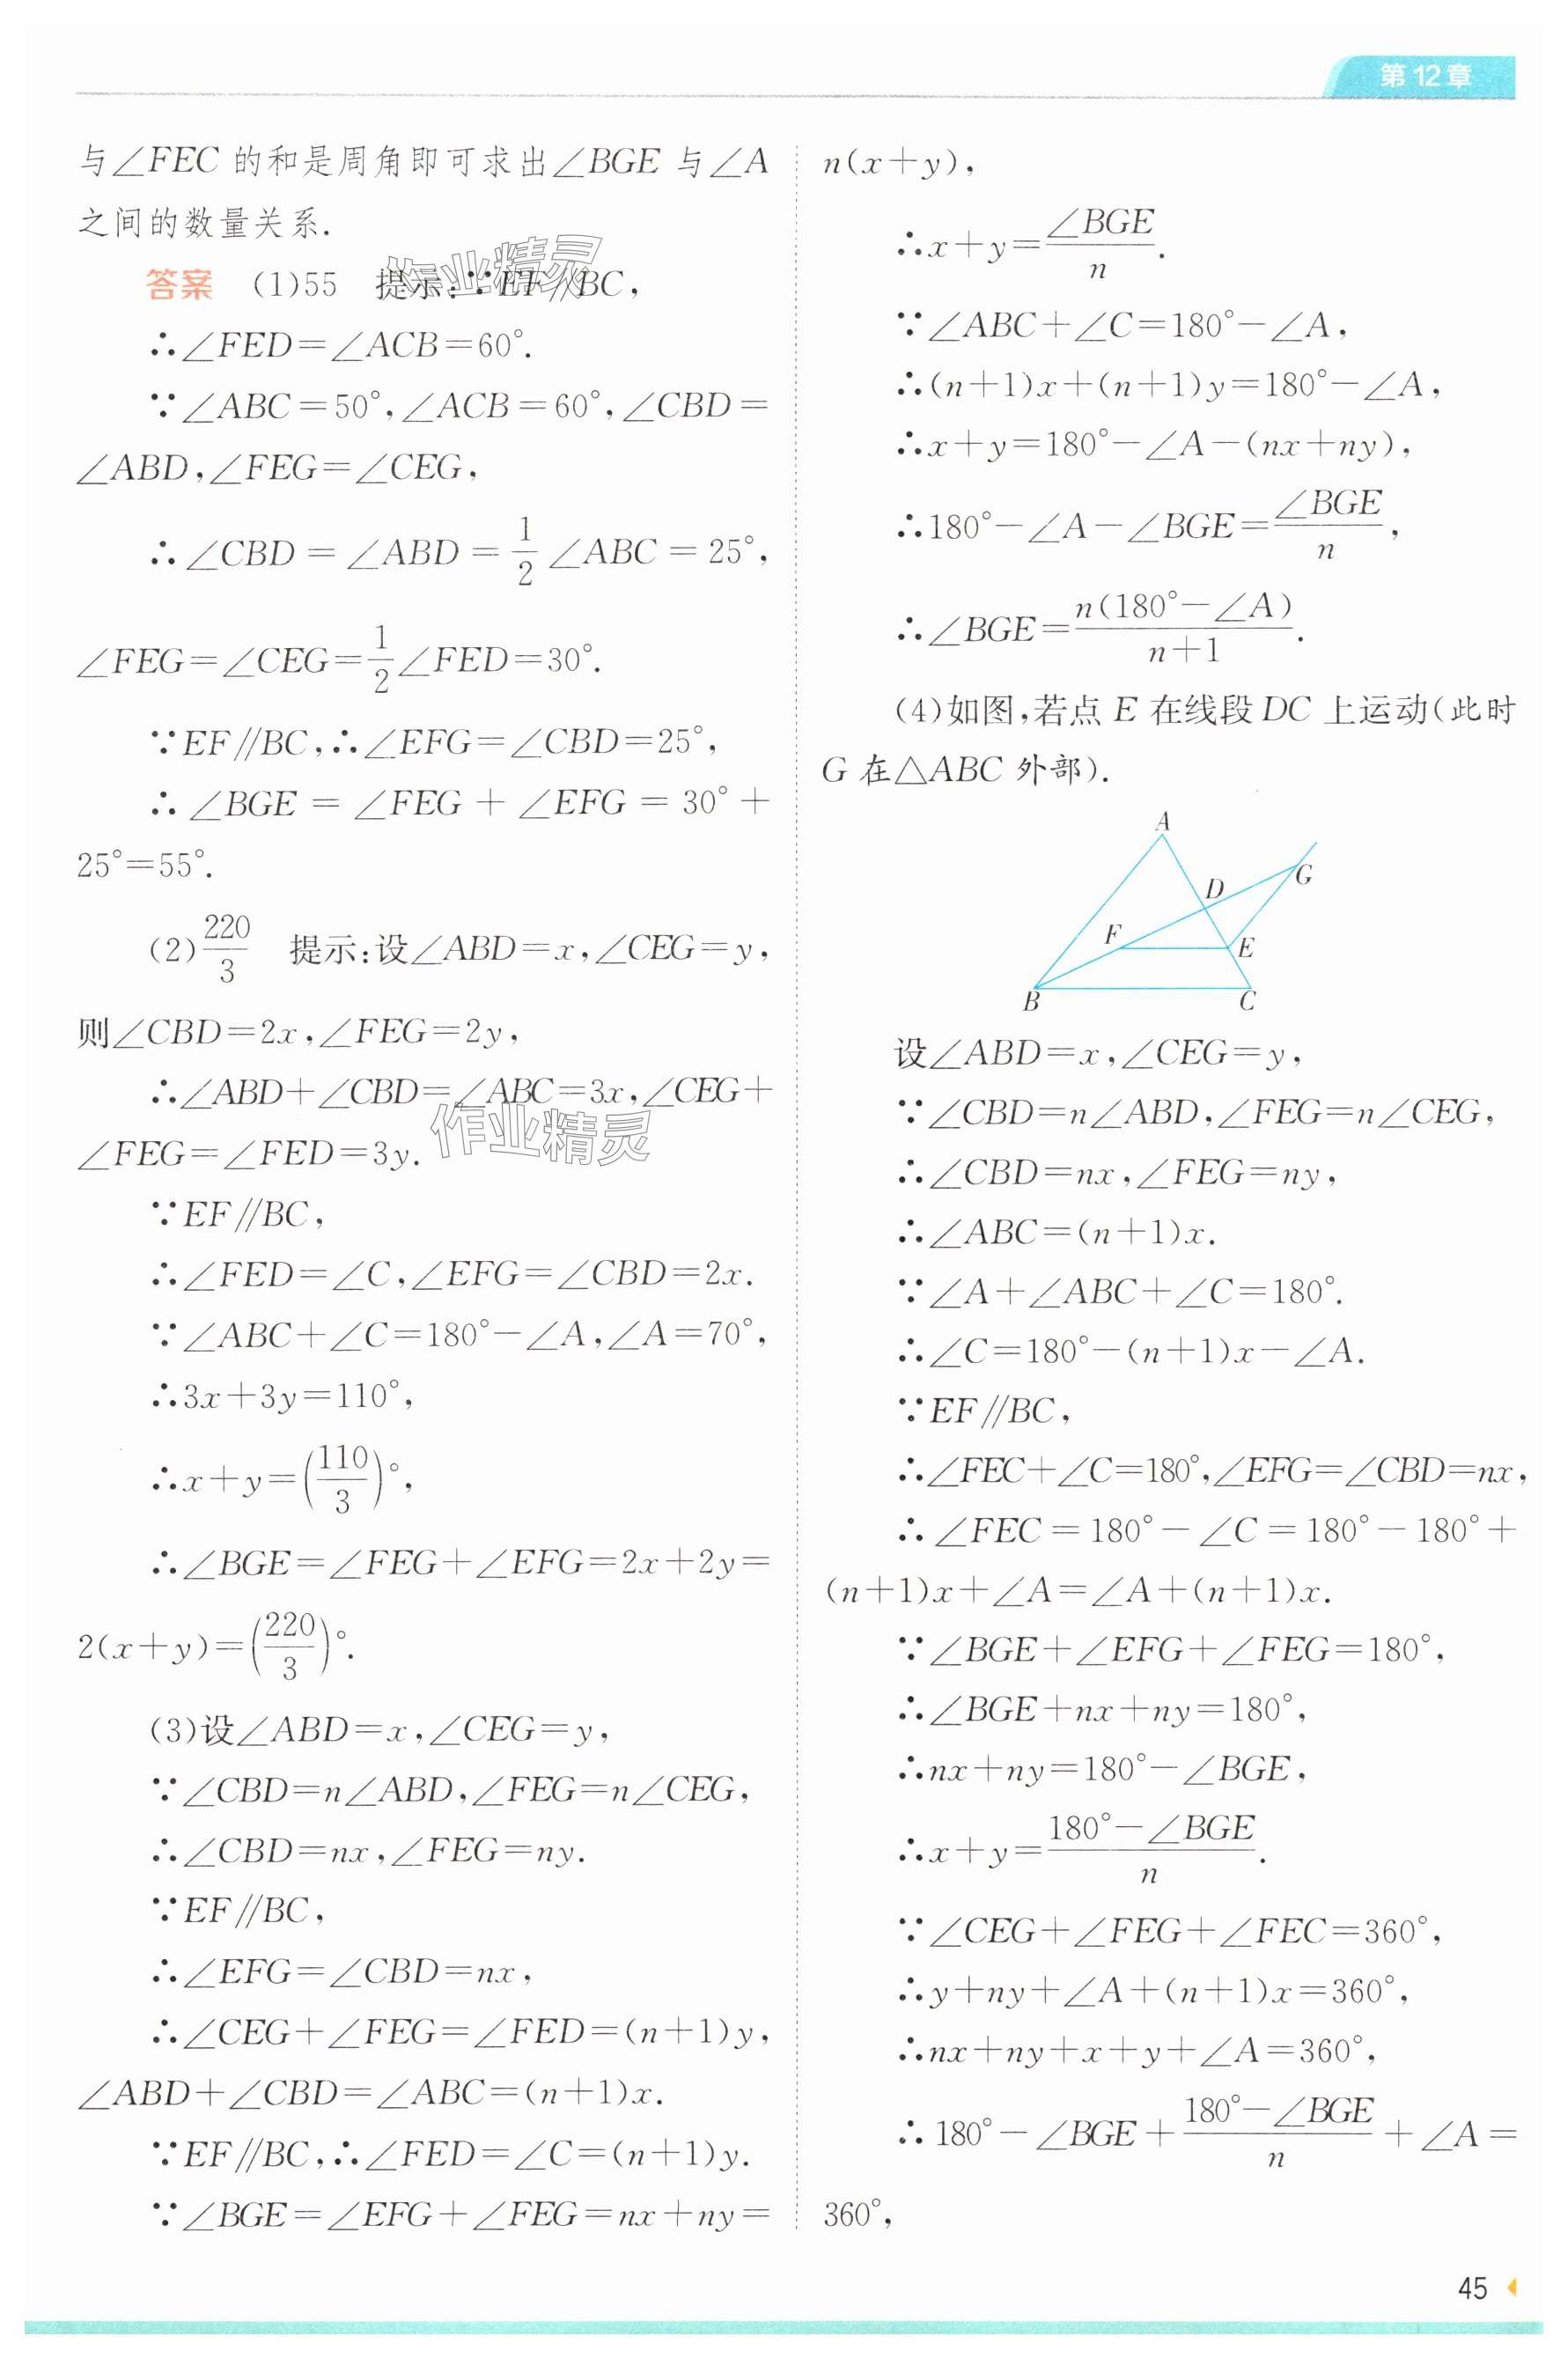 第12章
与∠FEC 的和是周角即可求出∠BGE 与∠A
之间的数量关系.
答案 (1)55 提示:∵EF∥BC,
∴∠FED=∠ACB=60°.
∵∠ABC=50°,∠ACB=60°,∠CBD=
∠ABD,∠FEG=∠CEG,
∴∠CBD=∠ABD=1/2∠ABC=25°,
∠FEG=∠CEG=1/2∠FED=30°.
∵EF∥BC,∴∠EFG=∠CBD=25°,
∴∠BGE=∠FEG+∠EFG=30°+
25°=55°.
(2)220/3 提示:设∠ABD=x,∠CEG=y,
则∠CBD=2x,∠FEG=2y,
∴∠ABD+∠CBD=∠ABC=3x,∠CEG+
∠FEG=∠FED=3y.
∵EF∥BC,
∴∠FED=∠C,∠EFG=∠CBD=2x.
∵∠ABC+∠C=180°-∠A,∠A=70°,
∴3x+3y=110°,
∴x+y=(110/3)°,
∴∠BGE=∠FEG+∠EFG=2x+2y=
2(x+y)=(220/3)°.
(3)设∠ABD=x,∠CEG=y,
∵∠CBD=n∠ABD,∠FEG=n∠CEG,
∴∠CBD=nx,∠FEG=ny.
∵EF∥BC,
∴∠EFG=∠CBD=nx,
∴∠CEG+∠FEG=∠FED=(n+1)y,
∠ABD+∠CBD=∠ABC=(n+1)x.
∵EF∥BC,∴∠FED=∠C=(n+1)y.
∵∠BGE=∠EFG+∠FEG=nx+ny=
n(x+y),
∴x+y=∠BGE/n.
∵∠ABC+∠C=180°-∠A,
∴(n+1)x+(n+1)y=180°-∠A,
∴x+y=180°-∠A-(nx+ny),
∴180°-∠A-∠BGE=∠BGE/n,
∴∠BGE=n(180°-∠A)/(n+1).
(4)如图,若点 E 在线段 DC 上运动(此时
G 在△ABC 外部).
A
G
D
F
E
B
C
设∠ABD=x,∠CEG=y,
∵∠CBD=n∠ABD,∠FEG=n∠CEG,
∴∠CBD=nx,∠FEG=ny,
∴∠ABC=(n+1)x.
∵∠A+∠ABC+∠C=180°.
∴∠C=180°-(n+1)x-∠A.
∵EF∥BC,
∴∠FEC+∠C=180°,∠EFG=∠CBD=nx,
∴∠FEC=180°-∠C=180°-180°+
(n+1)x+∠A=∠A+(n+1)x.
∵∠BGE+∠EFG+∠FEG=180°,
∴∠BGE+nx+ny=180°,
∴nx+ny=180°-∠BGE,
∴x+y=(180°-∠BGE)/n.
∵∠CEG+∠FEG+∠FEC=360°,
∴y+ny+∠A+(n+1)x=360°,
∴nx+ny+x+y+∠A=360°,
∴180°-∠BGE+(180°-∠BGE)/n+∠A=
360°,
45
作业精灵
作业精灵